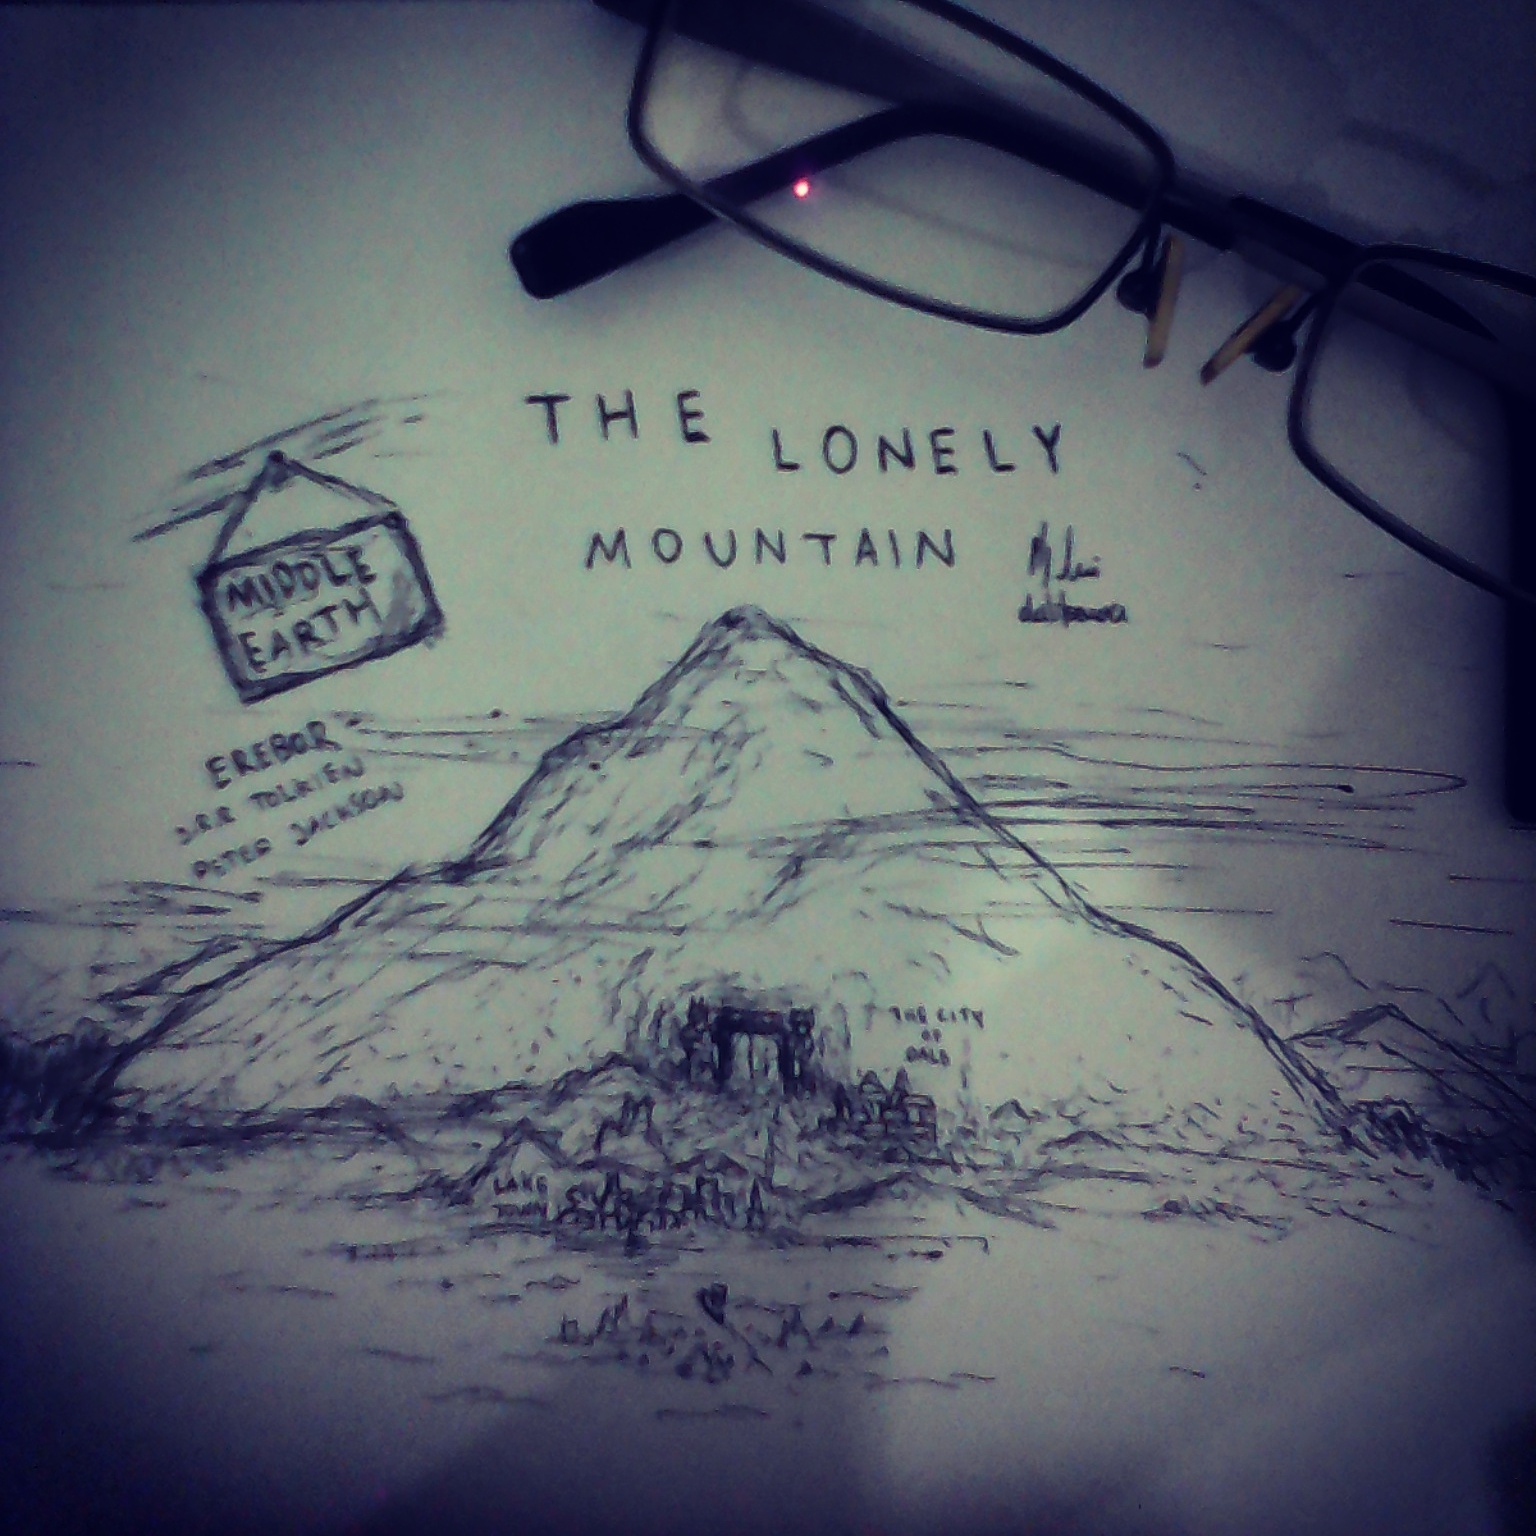 THE LONELY
MOUNTAIN
MIDDLE
EARTH
EREBOR
J.R.R TOLKIEN
PETER JACKSON
THE CITY
OF
DALE
LAKE
TOWN